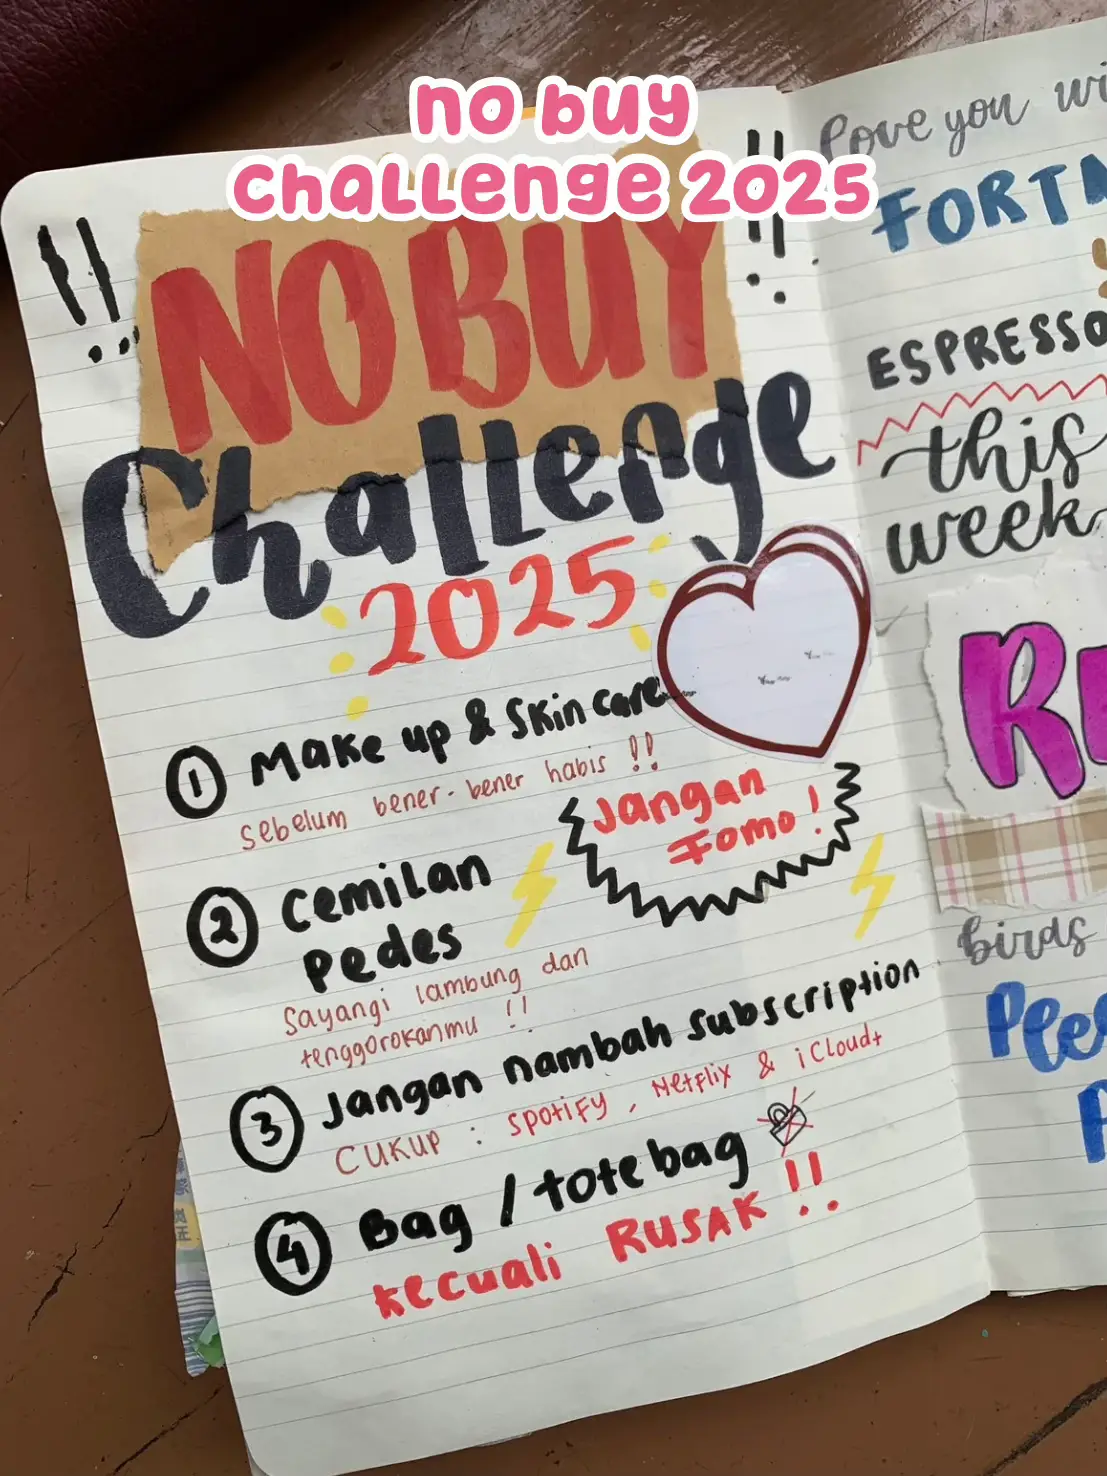 no buy
challenge 2025
!! NO BUY !!
Challenge
2025
1 Make up & Skin care
sebelum bener-bener habis !!
Jangan
Fomo!
2 cemilan
pedes
Sayangi lambung dan
tenggorokanmu !!
3 Jangan nambah subscription
CUKUP : SPOtiFY, Netflix & iCloud+
4 Bag / tote bag
kecuali RUSAK !!
love you
FORT
ESPRESSO
this
week
birds